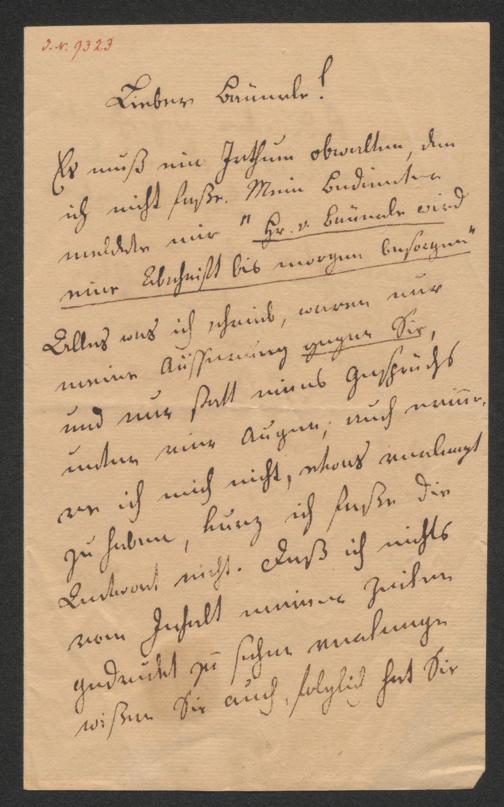 J. N. 9323
Lieber Bäuerle!
Es muß ein Irthum obwalten, den
ich nicht fasse. Mein Bedienter
meldete mir "Hr. v. Bäuerle wird
eine Abschrift bis morgen besorgen"
Alles was ich schrieb, waren nur
meine Äusserung gegen Sie,
und nur statt eines Gesprächs
unter vier Augen; auch erinne-
re ich mich nicht, etwas verlangt
zu haben, kurz ich fasse die
Antwort nicht. Daß ich nichts
vom Inhalt meiner Zeilen
gedruckt zu sehen verlange
wissen Sie auch, folglich hat Sie